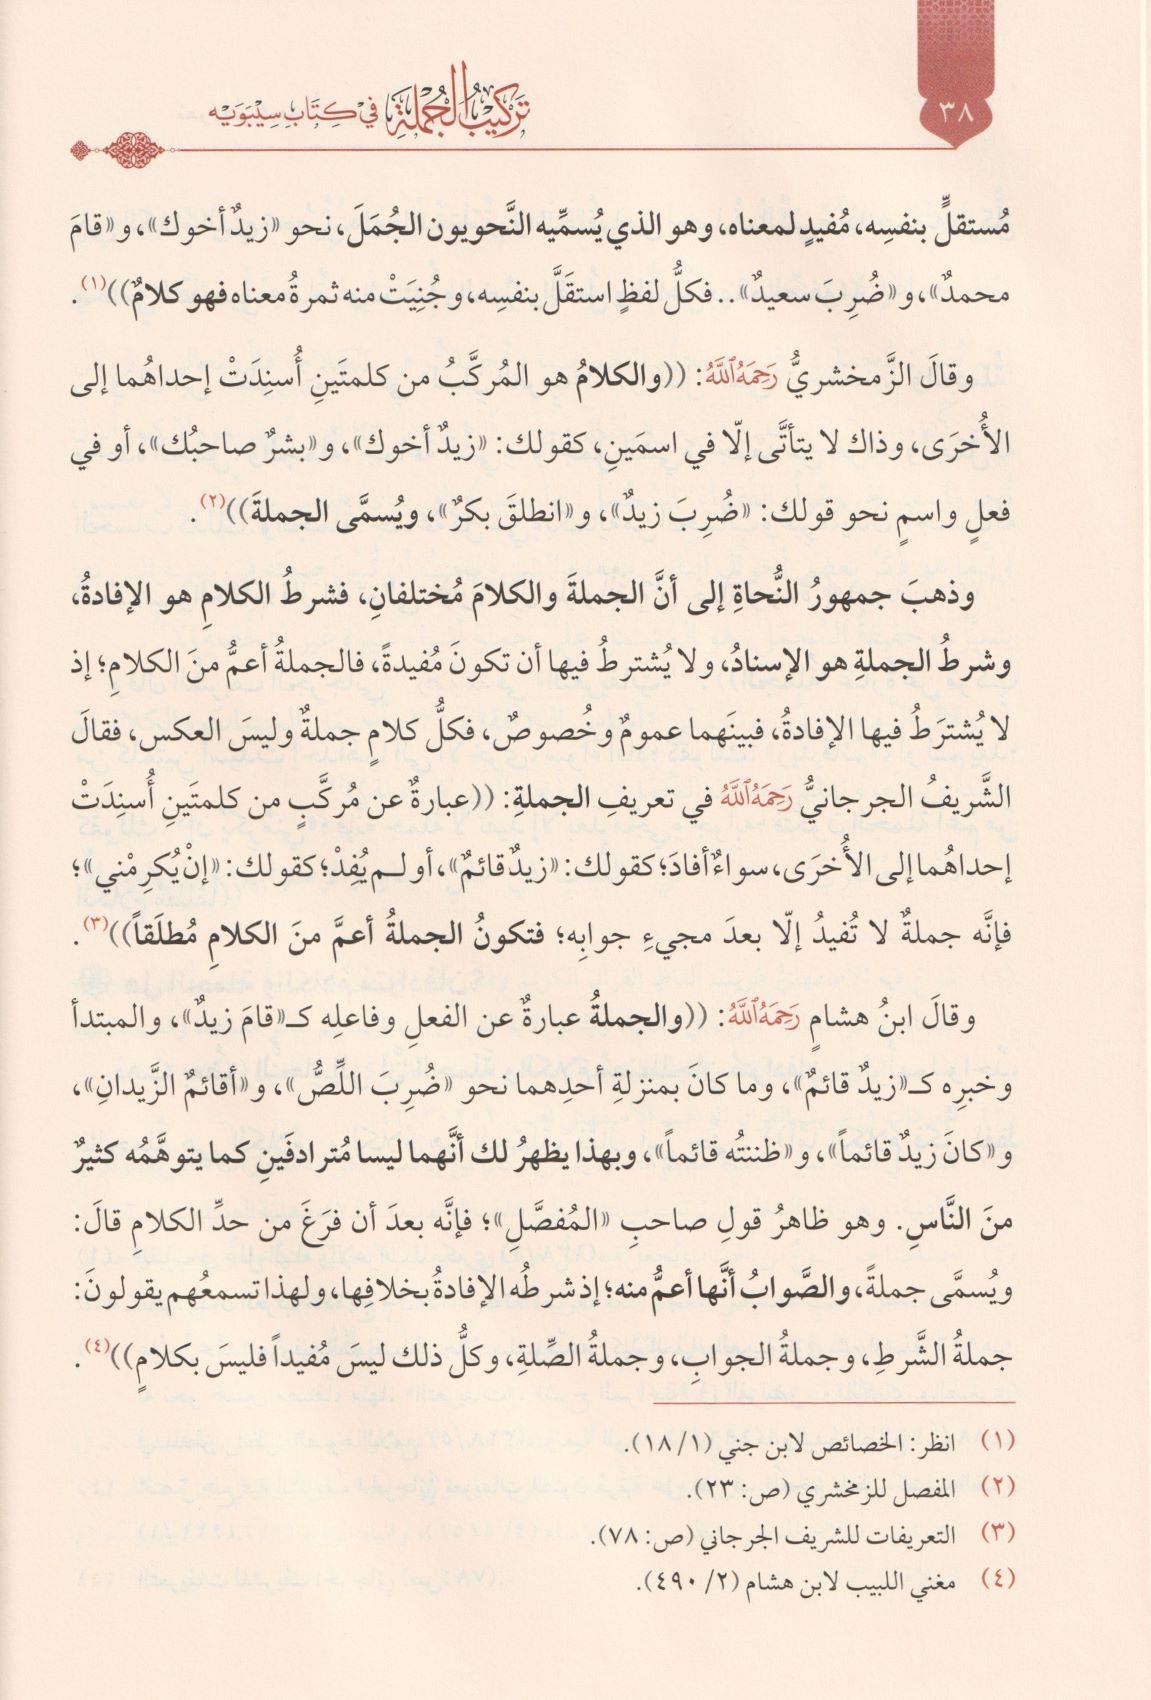 ٣٨
تَركيبُ الجُملَةِ في كِتَابِ سِيْبَوَيْه
مُستقلٍّ بنفسِه، مُفيدٍ لمعناه، وهو الذي يُسمِّيه النَّحويون الجُمَلَ، نحو «زيدٌ أخوك»، و«قامَ
محمدٌ»، و«ضُرِبَ سعيدٌ».. فكلُّ لفظٍ استقَلَّ بنفسِه، وجُنِيَتْ منه ثمرةُ معناه فهو كلامٌ))(١).
وقالَ الزَّمخشريُّ رَحِمَهُ ٱللَّهُ: ((والكلامُ هو المُركَّبُ من كلمتَينِ أُسنِدَتْ إحداهُما إلى
الأُخرَى، وذاك لا يتأتَّى إلّا في اسمَينِ، كقولك: «زيدٌ أخوك»، و«بشرٌ صاحبُك»، أو في
فعلٍ واسمٍ نحو قولك: «ضُرِبَ زيدٌ»، و«انطلقَ بكرٌ»، ويُسمَّى الجملةَ))(٢).
وذهبَ جمهورُ النُّحاةِ إلى أنَّ الجملةَ والكلامَ مُختلفانِ، فشرطُ الكلامِ هو الإفادةُ،
وشرطُ الجملةِ هو الإسنادُ، ولا يُشترطُ فيها أن تكونَ مُفيدةً، فالجملةُ أعمُّ منَ الكلامِ؛ إذ
لا يُشترَطُ فيها الإفادةُ، فبينَهما عمومٌ وخُصوصٌ، فكلُّ كلامٍ جملةٌ وليسَ العكس، فقالَ
الشَّريفُ الجرجانيُّ رَحِمَهُ ٱللَّهُ في تعريفِ الجملةِ: ((عبارةٌ عن مُركَّبٍ من كلمتَينِ أُسنِدَتْ
إحداهُما إلى الأُخرَى، سواءٌ أفادَ؛ كقولك: «زيدٌ قائمٌ»، أو لـم يُفِدْ؛ كقولك: «إنْ يُكرِمْني»؛
فإنَّه جملةٌ لا تُفيدُ إلّا بعدَ مجيءِ جوابِه؛ فتكونُ الجملةُ أعمَّ منَ الكلامِ مُطلَقاً))(٣).
وقالَ ابنُ هشامٍ رَحِمَهُ ٱللَّهُ: ((والجملةُ عبارةٌ عن الفعلِ وفاعلِه كـ«قامَ زيدٌ»، والمبتدأ
وخبرِه كـ«زيدٌ قائمٌ»، وما كانَ بمنزلةِ أحدِهما نحو «ضُرِبَ اللِّصُّ»، و«أقائمٌ الزَّيدانِ»،
و«كانَ زيدٌ قائماً»، و«ظننتُه قائماً»، وبهذا يظهرُ لك أنَّهما ليسا مُترادفَينِ كما يتوهَّمُه كثيرٌ
منَ النَّاسِ. وهو ظاهرُ قولِ صاحبِ «المُفصَّلِ»؛ فإنَّه بعدَ أن فرَغَ من حدِّ الكلامِ قالَ:
ويُسمَّى جملةً، والصَّوابُ أنَّها أعمُّ منه؛ إذ شرطُه الإفادةُ بخلافِها، ولهذا تسمعُهم يقولونَ:
جملةُ الشَّرطِ، وجملةُ الجوابِ، وجملةُ الصِّلةِ، وكلُّ ذلك ليسَ مُفيداً فليسَ بكلامٍ))(٤).
(١) انظر: الخصائص لابن جني (١/ ١٨).
(٢) المفصل للزمخشري (ص: ٢٣).
(٣) التعريفات للشريف الجرجاني (ص: ٧٨).
(٤) مغني اللبيب لابن هشام (٢/ ٤٩٠).